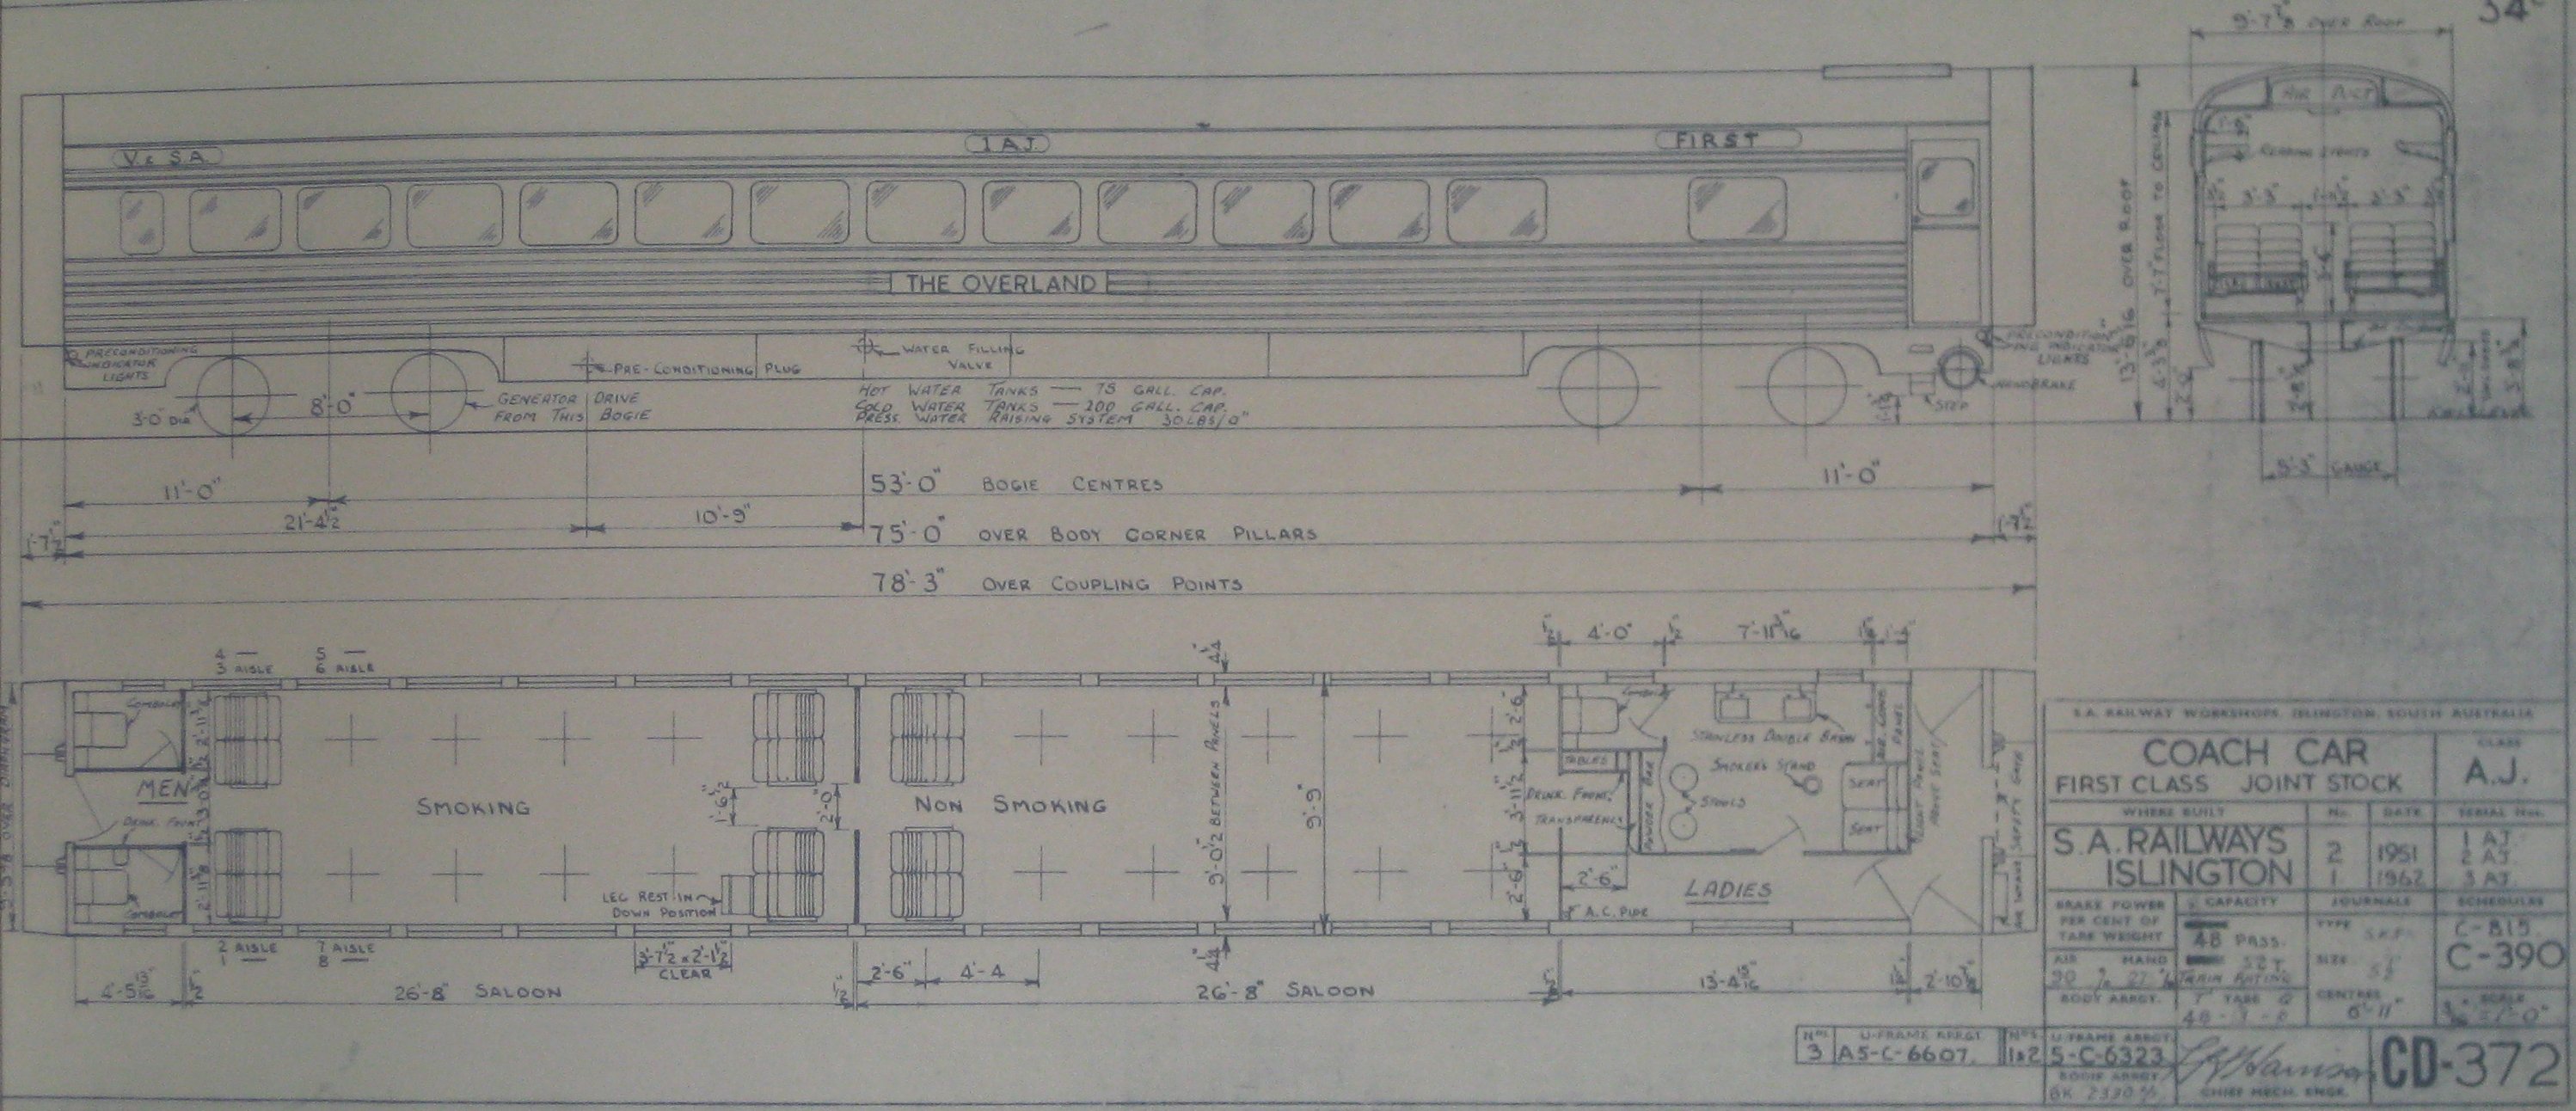 34
9'-7⅞" OVER ROOF
V & S.A.
1 AJ.
FIRST
AIR DUCT
READING LIGHTS
THE OVERLAND
13'-6 1/16" OVER ROOF
7'-7" FLOOR TO CEILING
PRECONDITIONING
INDICATOR
LIGHTS
3'-0" DIA
8'-0"
GENERATOR DRIVE
FROM THIS BOGIE
PRE-CONDITIONING PLUG
WATER FILLING
VALVE
HOT WATER TANKS — 75 GALL. CAP.
COLD WATER TANKS — 200 GALL. CAP.
PRESS. WATER RAISING SYSTEM 30LBS/□"
PRECONDITION-
ING INDICATOR
LIGHTS
HANDBRAKE
STEP
5'-3" GAUGE
11'-0"
53'-0" BOGIE CENTRES
11'-0"
21'-4½"
10'-9"
1'-7½"
75'-0" OVER BODY CORNER PILLARS
1'-7½"
78'-3" OVER COUPLING POINTS
4 —
3 AISLE
5 —
6 AISLE
4'-0"
½
7'-11 3/16"
COMBOLET
MEN
DRINK. FOUNT.
COMBOLET
SMOKING
1'-6½"
2'-0"
LEG REST IN
DOWN POSITION
NON SMOKING
9'-0½" BETWEEN PANELS
9'-9"
2'-6"
3'-11½"
2'-6"
COMBOLET
TABLES
DRINK. FOUNT.
TRANSPARENCY
POWDER BAR
STAINLESS DOUBLE BASIN
SMOKER'S STAND
STOOLS
SEAT
SEAT
AIR COND. PANEL
LIGHT PANEL
ABOVE SEAT
2'-6"
A.C. PIPE
LADIES
2 AISLE
1 —
7 AISLE
8 —
3'-7½" x 2'-1½"
CLEAR
2'-6"
4'-4
4'-5 13/16
½
26'-8" SALOON
½
26'-8" SALOON
13'-4 15/16
2'-10⅞"
S.A. RAILWAY WORKSHOPS, ISLINGTON, SOUTH AUSTRALIA
COACH CAR
FIRST CLASS JOINT STOCK
CLASS
A.J.
WHERE BUILT
No.
DATE
SERIAL Nos.
S.A. RAILWAYS
ISLINGTON
2 1951
1 1962
1 AJ.
2 AJ.
3 AJ.
BRAKE POWER
PER CENT OF
TARE WEIGHT
CAPACITY
48 PASS.
52 T.
TRAIN RATING
JOURNALS
TYPE S.K.F.
SIZE
CENTRES
6'-11"
SCHEDULES
C-815
C-390
AIR HAND
90 % 27 %
BODY ARRGT.
T TARE Q
SCALE
Nos. 3
U-FRAME ARRGT
A5-C-6607.
Nos. 1&2
U-FRAME ARRGT.
5-C-6323
BOGIE ARRGT.
CHIEF MECH. ENGR.
CD-372